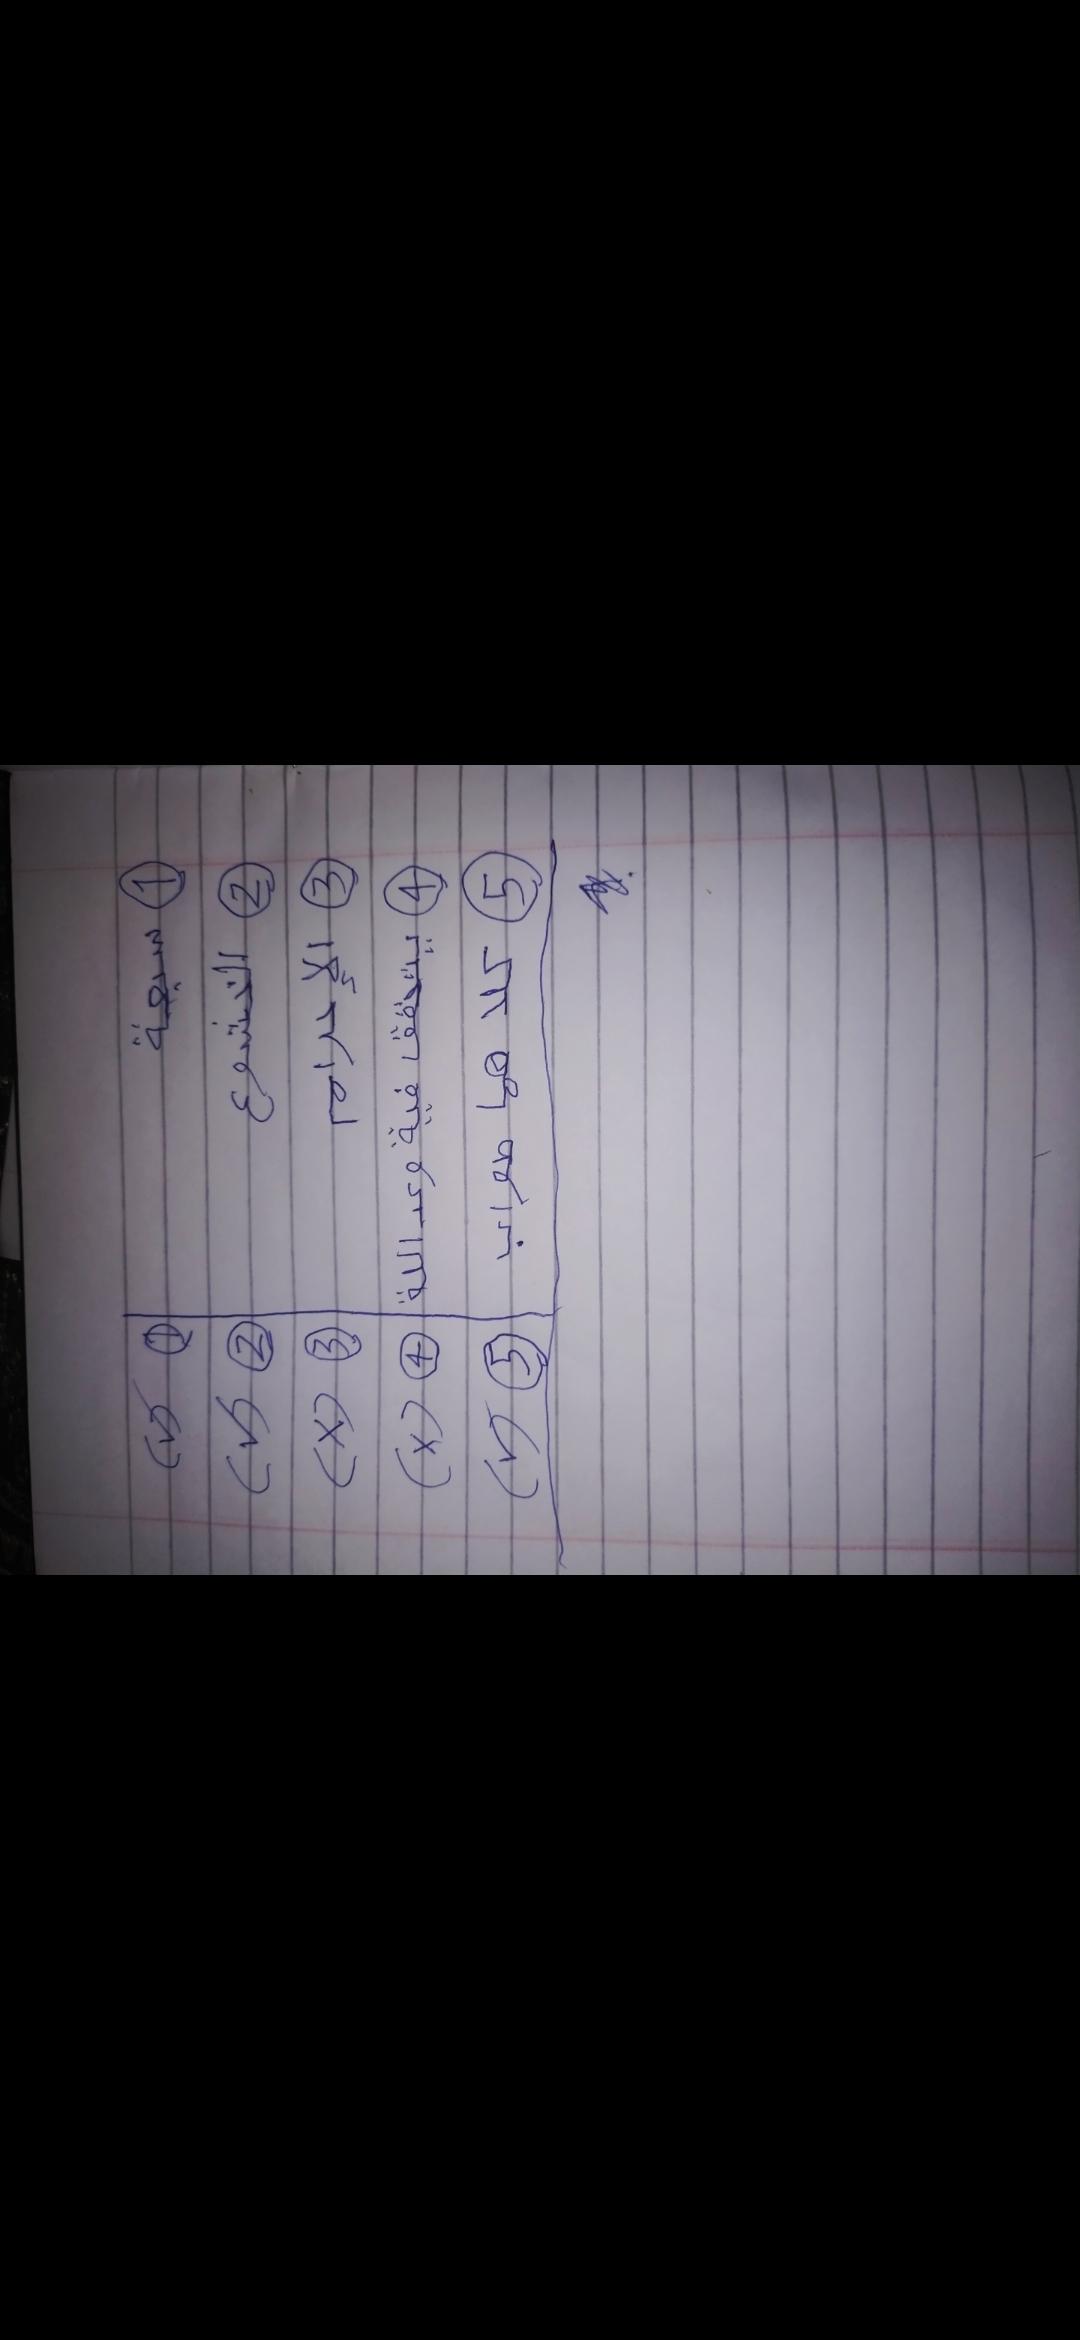 ① سبعة
② الخشوع
③ الإحرام
④ يتدفق فية وجد اللة
⑤ كلا هما صواب
① (✓)
② (✓)
③ (×)
④ (×)
⑤ (✓)